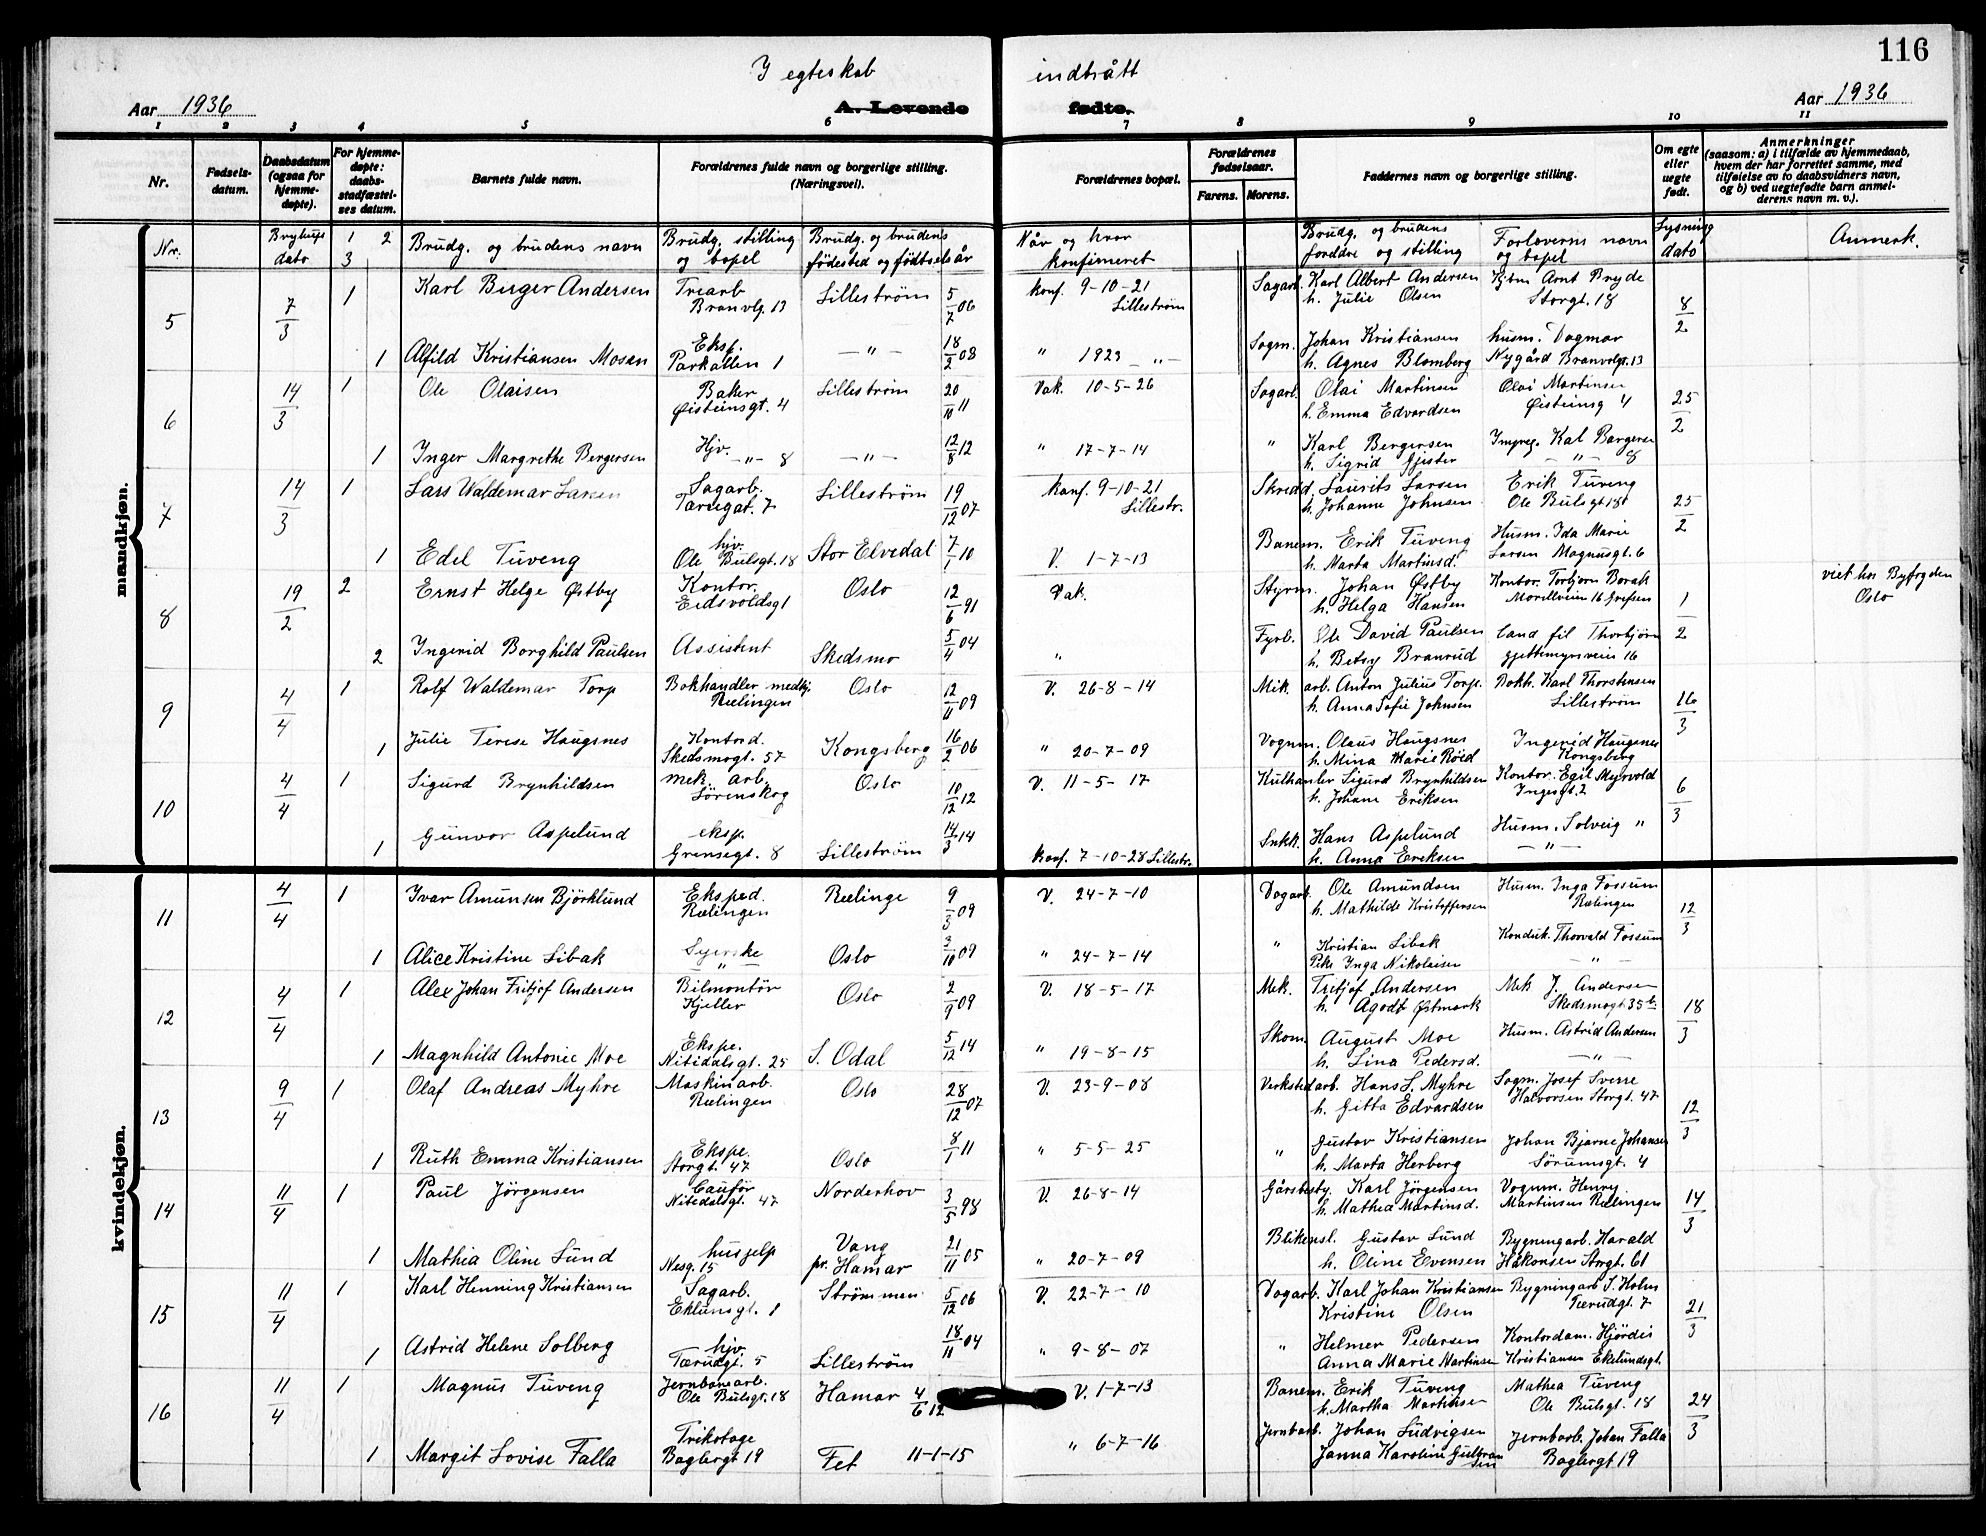 116
I egteskab indtrått
Aar 1936 A. Levende fødte. Aar 1936
1 2 3 4 5 6 7 8 9 10 11
Nr.
Fødsels-
datum.
Daabsdatum
(ogsaa for
hjemme-
døpte).
For hjemme-
døpte:
daabs-
stadfæstel-
ses datum.
Barnets fulde navn.
Forældrenes fulde navn og borgerlige stilling.
(Næringsvei).
Forældrenes bopæl.
Forældrenes
fødselsaar.
Farens. Morens.
Faddernes navn og borgerlige stilling.
Om egte
eller
uegte
født.
Anmerkninger
(saasom: a) i tilfælde av hjemmedaab,
hvem der har forrettet samme, med
tilføielse av to daabsvidners navn,
og b) ved uegtefødte barn anmel-
derens navn m. v.).
mandkjøn.
kvindekjøn.
Nr.
Bryllups
dato
1 2
3
Brudg. og brudens navn
Brudg. stilling
og bopel
Brudg. og brudens
fødested og fødtsels år
Når og hvor
konfimeret
Brudg. og brudens
foreldre og stilling
Forloverns navn
og bopel
Lysning
dato
Anmerk.
5 7/3 1 Karl Birger Andersen Trearb Lillestrøm 5/7 06 Konf. 9-10-21 Sagarb. Karl Albert Andersen Kjbm Arnt Bryde 8/2
Branvlg. 13 Lillestrøm h. Julie Olsen Storgt. 18
1 Alfild Kristiansen Mosan Eksp. —„— 18/2 08 „ 1923 —„— Sagm. Johan Kristiansen husm. Dagmar
Parkallen 1 h. Agnes Blomberg Nygård Branvolgt. 13
6 14/3 1 Ole Olaisen Baker Lillestrøm 20/10 11 Vak. 10-5-26 Sagarb. Olai Martinsen Olai Martinsen 25/2
Øisteinsgt. 4 h. Emma Edvardsen Øisteinsg 4
1 Inger Margrethe Bergersen Hjv. —„— 12/8 12 „ 17-7-14 „ Karl Bergersen
—„— 8 h. Sigrid Gjister —„— 8
7 14/3 1 Lars Waldemar Larsen Sagarb. Lillestrøm 19/12 07 Konf. 9-10-21 Skredd. Laurits Larsen Erik Tuveng 25/2
7 Lillestr. h. Johanne Johnsen Ole Bulsgt 18
1 Edel Tuveng hjv. Stor Elvedal 7/1 10 V. 1-7-13 Banem. Erik Tuveng Husm. Ida Marie
Ole Bulsgt. 18 h. Marta Martinsd. Larsen Magnusgt. 6
8 19/2 2 Ernst Helge Østby Kontor. Oslo 12/6 91 Vak. Styrm. Johan Østby Kontor. Torbjørn Borak 1/2 viet hos Byfogden
Eidsvoldsgt h. Helga Hansen Morellveien 16 Grefsen Oslo
2 Ingerid Borghild Paulsen Assistent Skedsmo 5/4 04 „ Fyrb. Ole David Paulsen Cand fil Thorbjørn
h. Betsy Branrud Gjettemyrsveien 16
9 4/4 1 Rolf Waldemar Torp Bokhandler medhj. Oslo 12/11 09 V. 26-8-14 Mik. arb. Anton Julius Torp. Bokh. Karl Thorstensen 16/3
Rælingen h. Anna Sofie Johnsen Lillestrøm
1 Julie Terese Haugsnes Kontord. Kongsberg 16/2 06 „ 20-7-09 Vognm. Olaus Haugsnes Ingerid Haugsnes
Skedsmogt. 57 h. Mina Marie Røid Kongsberg
10 4/4 1 Sigurd Brynhildsen mek. arb. Oslo 10/12 12 V. 11-5-17 Kulhanler Sigurd Brynhildsen Kontor. Egil Myrvold 6/3
Sørenskog h. Johane Eriksen Ingesgt. 2
1 Gunvor Aspelund eksp. Lillestrøm 14/3 14 Konf. 7-10-28 Lillestr. Snkk. Hans Aspelund Husm. Solveig „
Grensegt. 8 h. Anna Eriksen —„—
11 4/4 1 Ivar Amunsen Bjørklund Eksped. Rælinge 9/3 09 V. 24-7-10 Dagarb. Ole Amundsen Husm. Inga Fossum 12/3
Rælingen h. Mathilde Kristoffersen Rælingen
1 Alice Kristine Libak Syerske Oslo 3/10 09 „ 24-7-14 „ Kristian Libak Konduk. Thorvald Fossum
„ Pike Inga Nikolaisen —„—
12 4/4 1 Alex Johan Fritjof Andersen Bilmontør Oslo 2/9 09 V. 18-5-17 Mek. Fritjof Andersen Mek J. Andersen 18/3
Kjeller h. Agodt Østmark Skedsmogt. 35 b
1 Magnhild Antonie Moe Ekspe. S. Odal 5/12 14 „ 19-8-15 Skom. August Moe Husm. Astrid Andersen
Nitedalsgt. 25 h. Lina Pedersd. —„—
13 9/4 1 Olaf Andreas Myhre Maskinarb. Oslo 28/12 07 V. 23-9-08 Verkstedarb. Hans L. Myhre Sagm. Josef Sverre 12/3
Rælingen h. Gitta Edvardsen Halvorsen Storgt. 47
1 Ruth Emma Kristiansen Ekspe. Oslo 8/1 11 „ 5-5-25 „ Gustav Kristiansen Johan Bjarne Johansen
Storgt. 47 h. Marta Herberg Sørumsgt. 4
14 11/4 1 Paul Jørgensen Norderhov 3/5 98 V. 26-8-14 Gårsbesty. Karl Jørgensen Vognm. Henry 14/3
Nitedalsgt. 47 h. Mathea Martinsd. Martinsen Rælingen
1 Mathia Oline Lund husjelp Vang 21/11 05 „ 20-7-09 Blikensl. Gustav Lund Bygningarb. Harald
Nesg. 15 pr. Hamar h. Oline Evensen Håkonsen Storgt. 61
15 11/4 1 Karl Henning Kristiansen Sagarb. Strømmen 5/12 06 V. 22-7-10 Dagarb. Karl Johan Kristiansen Bygningarb S. Holm 21/3
Eklunsgt. 1 Kristine Olsen Tærudgt. 7
1 Astrid Helene Solberg hjv. Lillestrøm 18/11 04 „ 9-8-07 „ Helmer Pedersen Kontordam. Hjørdis
Tærudgt. 5 Anna Marie Martinsen Kristiansen Ekelundsgt.
16 11/4 1 Magnus Tuveng Jernbanearb. Hamar 4/6 12 V. 1-7-13 Banem. Erik Tuveng Mathea Tuveng 24/3
Ole Bulsgt. 18 h. Martha Martinsen Ole Bulsgt. 18
1 Margit Lovise Falla Trikotage Fet 11-1-15 „ 6-7-16 Jernbarb. Johan Ludvigsen Jernbarb. Johan Falla
Baglergt 19 Janna Karoline Gulbran Baglergt 19
sen